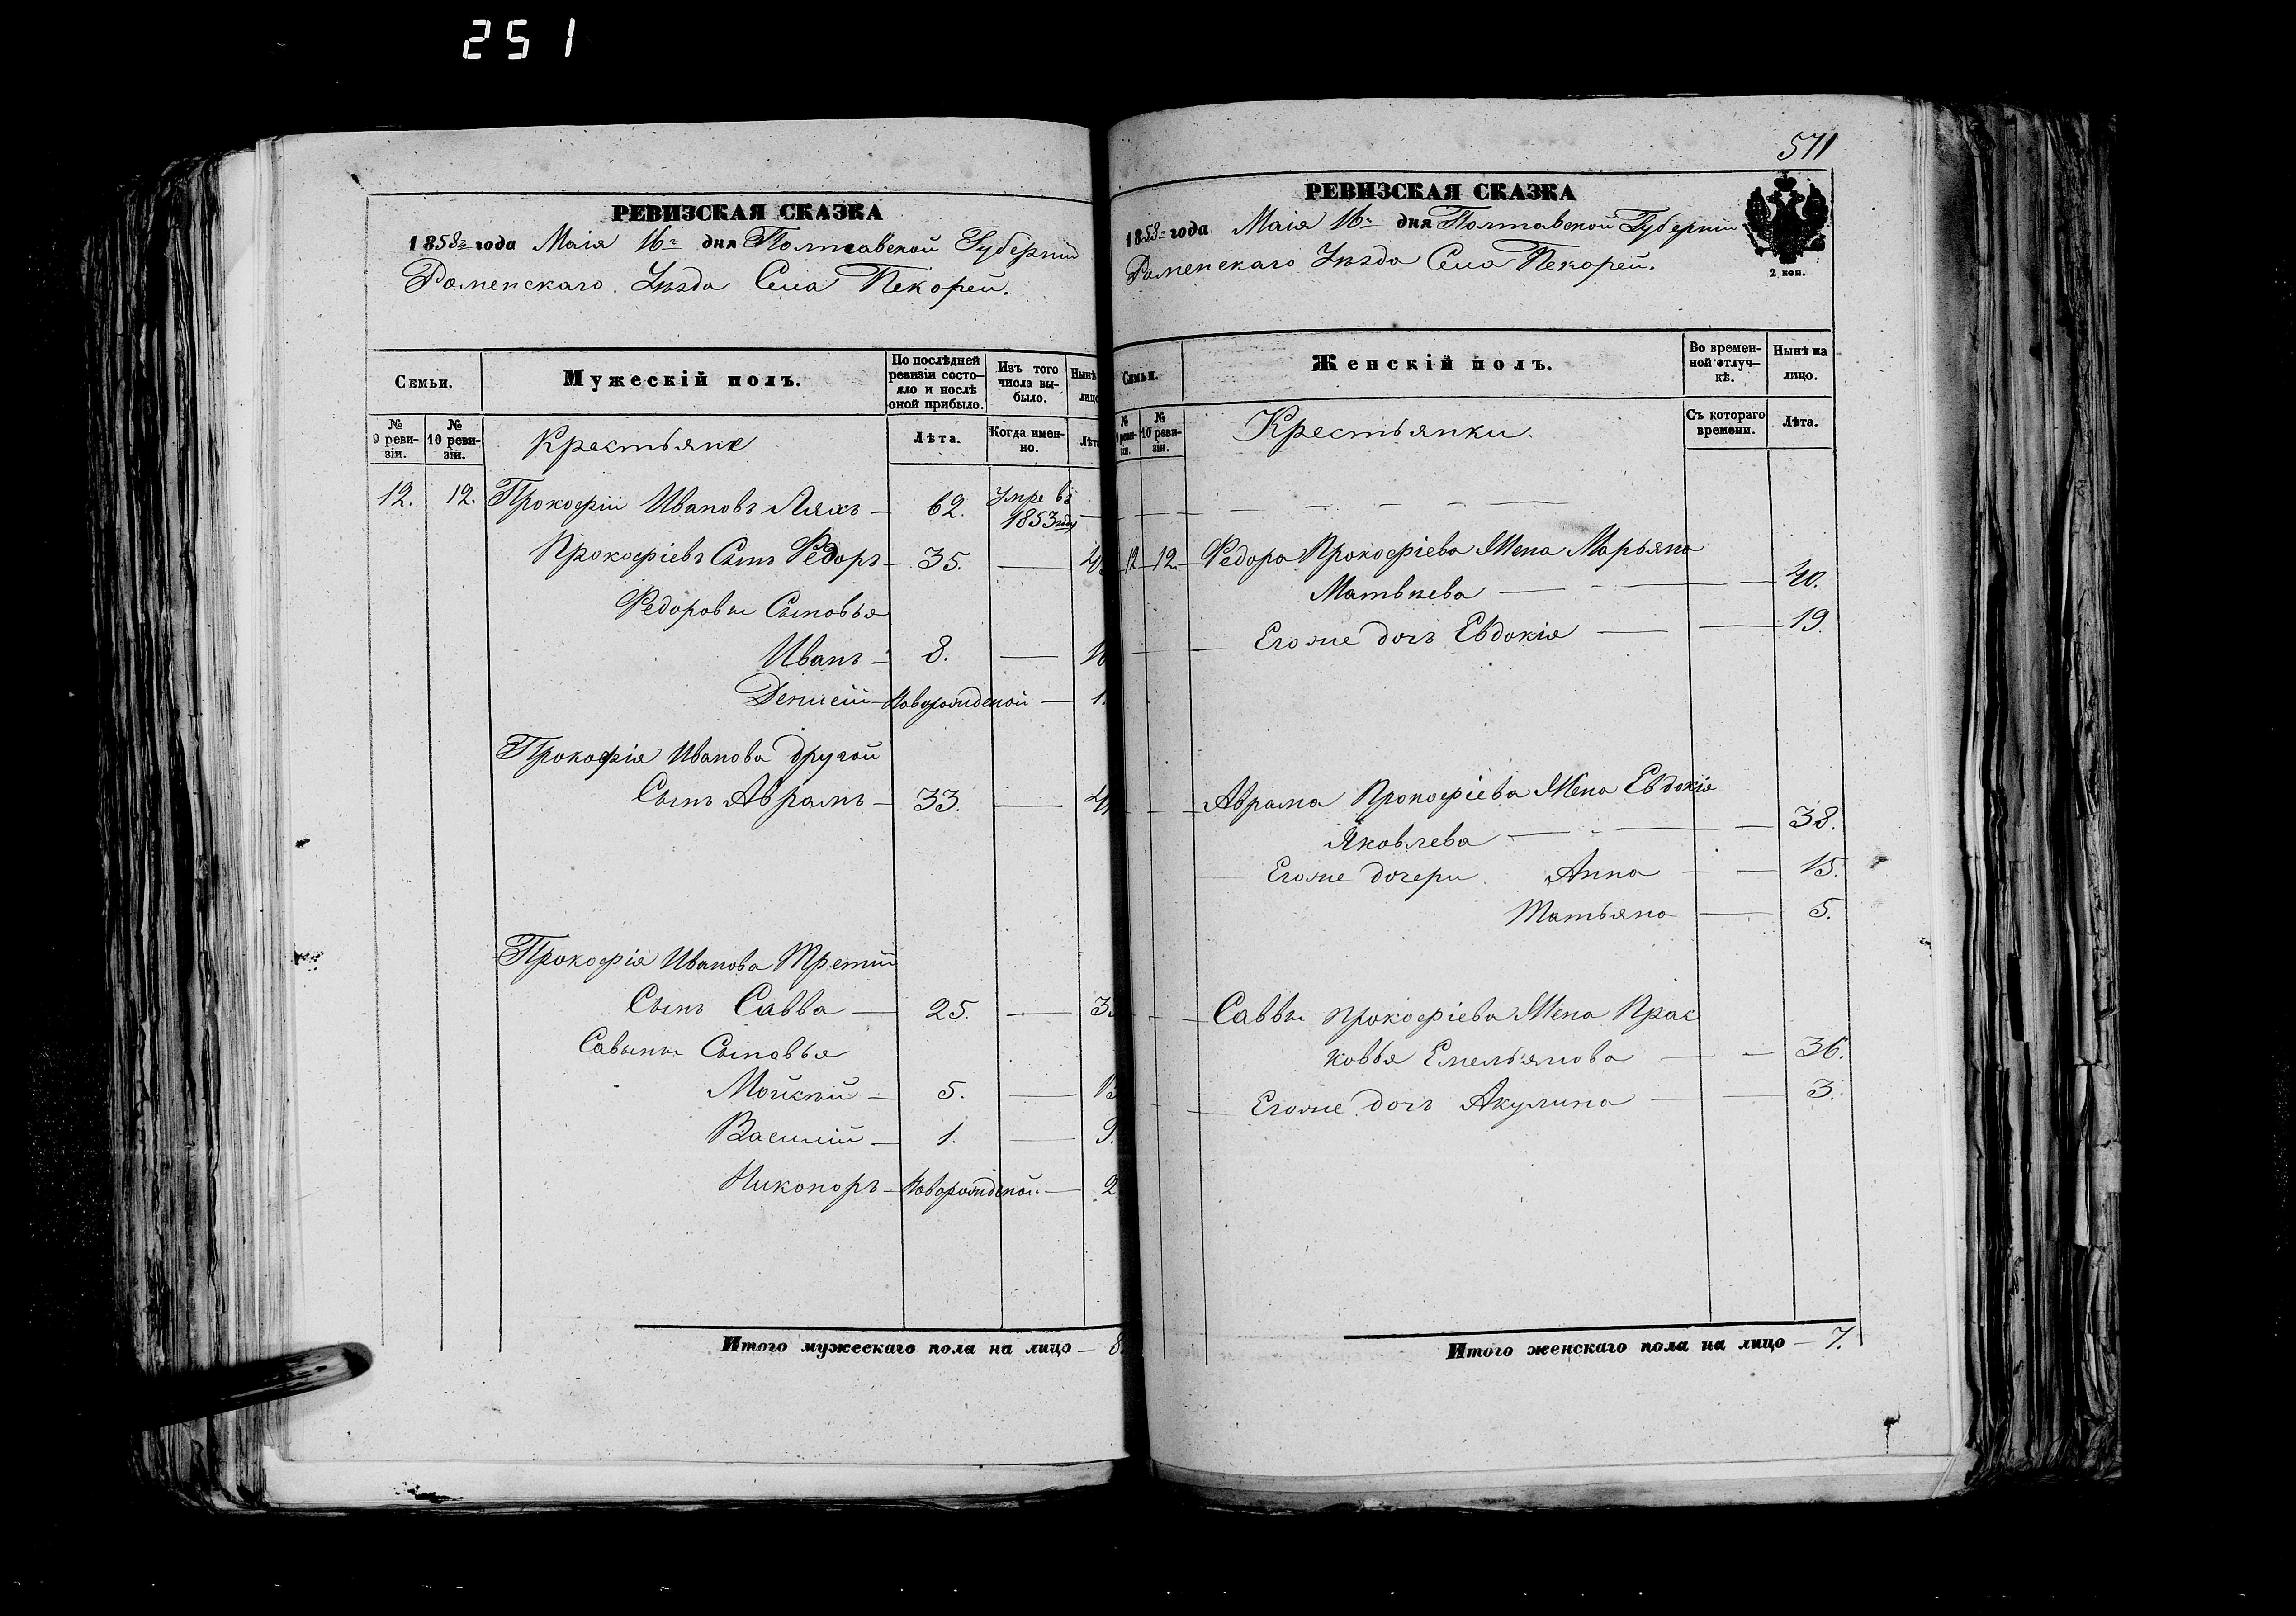 251
РЕВИЗСКАЯ СКАЗКА
1858го года Маія 16го дня Полтавской Губерніи
Роменскаго Уѣзда Села Пекорей.
Семьи.
Мужескій полъ.
По послѣдней ревизіи состо-
яло и послѣ оной прибыло.
Изъ того числа вы-
было.
Нынѣ
лицо
№ 9 реви-
зіи.
№ 10 реви-
зіи.
Крестьяне
Лѣта.
Когда имен-
но.
Лѣта
12. 12. Прокофій Ивановъ Ляхъ — 62. Умре въ
1853 году
Прокофіевъ Сынъ Федоръ — 35. —
Федоровы Сыновья
Иванъ — 8. —
Денисій — Новорожденой —
Прокофія Иванова другой
Сынъ Аврамъ — 33. —
Прокофія Иванова Третій
Сынъ Савва — 25. —
Савыны Сыновья
Мойсѣй — 5. —
Василій — 1. — 9.
Никоноръ — Новорожденой — 2
Итого мужескаго пола на лицо — 8.
571
РЕВИЗСКАЯ СКАЗКА
1858го года Маія 16го дня Полтавской Губерніи
Роменскаго Уѣзда Села Пекорей.
2 коп.
Семьи.
Женскій полъ.
Во времен-
ной отлуч-
кѣ.
Нынѣ на
лицо.
№ 10 реви-
зіи.
Крестьянки.
Съ котораго
времени.
Лѣта.
12 12. Федора Прокофіева Жена Марьяна
Матвѣева — 40.
Егоже дочь Евдокія — 19.
Аврама Прокофіева Жена Евдокія
Яковлева — 38.
Егоже дочери Анна — 15.
Татьяна — 5.
Саввы Прокофіева Жена Прас
ковья Емельянова — 36.
Егоже дочь Акулина — 3.
Итого женскаго пола на лицо — 7.